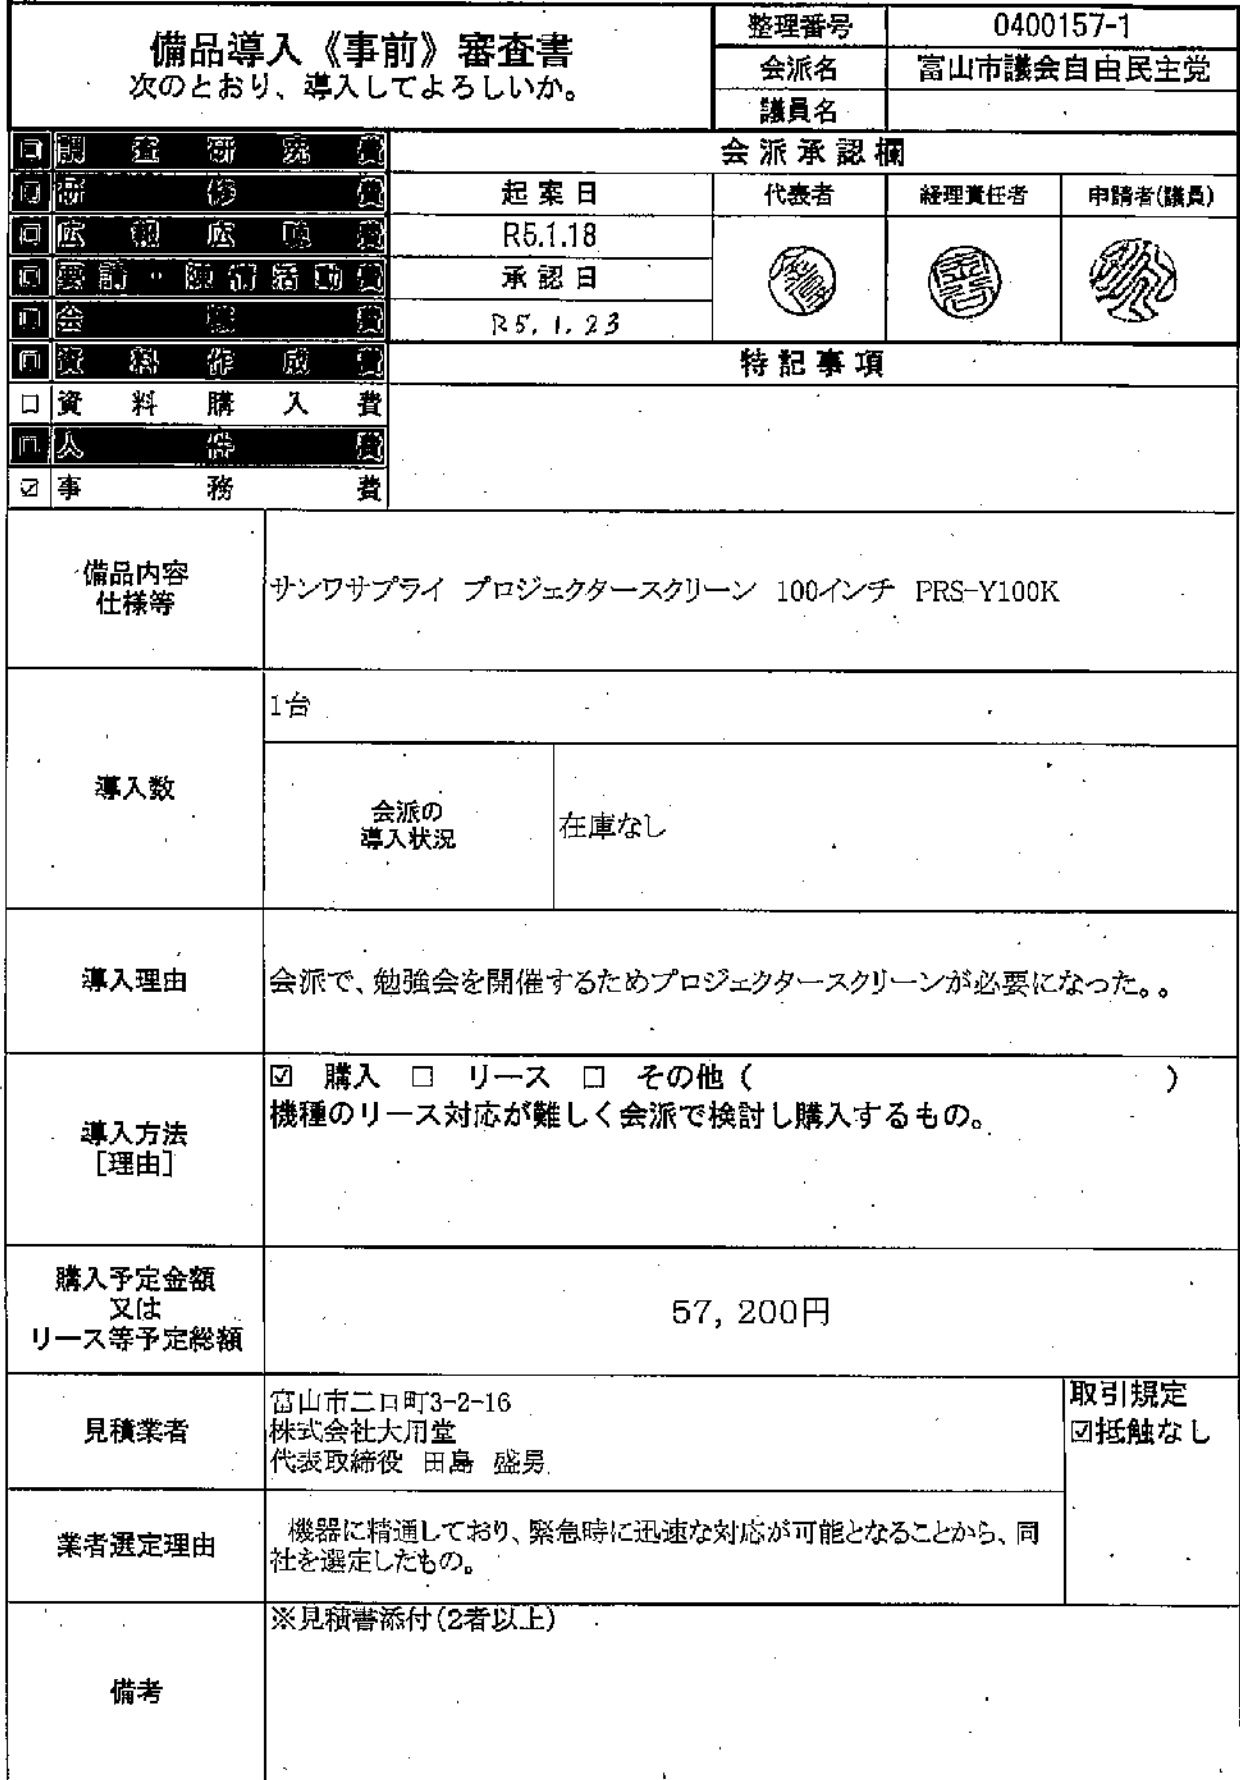 備品導入《事前》審査書
次のとおり、導入してよろしいか。
整理番号 0400157-1
会派名 富山市議会自由民主党
議員名
□ 調査研究費
□ 研修費
□ 広報広聴費
□ 要請・陳情活動費
□ 会議費
□ 資料作成費
□ 資料購入費
□ 人件費
☑ 事務費
会派承認欄
起案日 代表者 経理責任者 申請者(議員)
R5.1.18
承認日
R5.1.23
特記事項
備品内容
仕様等
サンワサプライ プロジェクタースクリーン 100インチ PRS-Y100K
導入数
1台
会派の
導入状況
在庫なし
導入理由
会派で、勉強会を開催するためプロジェクタースクリーンが必要になった。。
導入方法
[理由]
☑ 購入 □ リース □ その他 ( )
機種のリース対応が難しく会派で検討し購入するもの。
購入予定金額
又は
リース等予定総額
57,200円
見積業者
富山市二口町3-2-16
株式会社大用堂
代表取締役 田島 盛男
取引規定
☑抵触なし
業者選定理由
機器に精通しており、緊急時に迅速な対応が可能となることから、同
社を選定したもの。
備考
※見積書添付(2者以上)